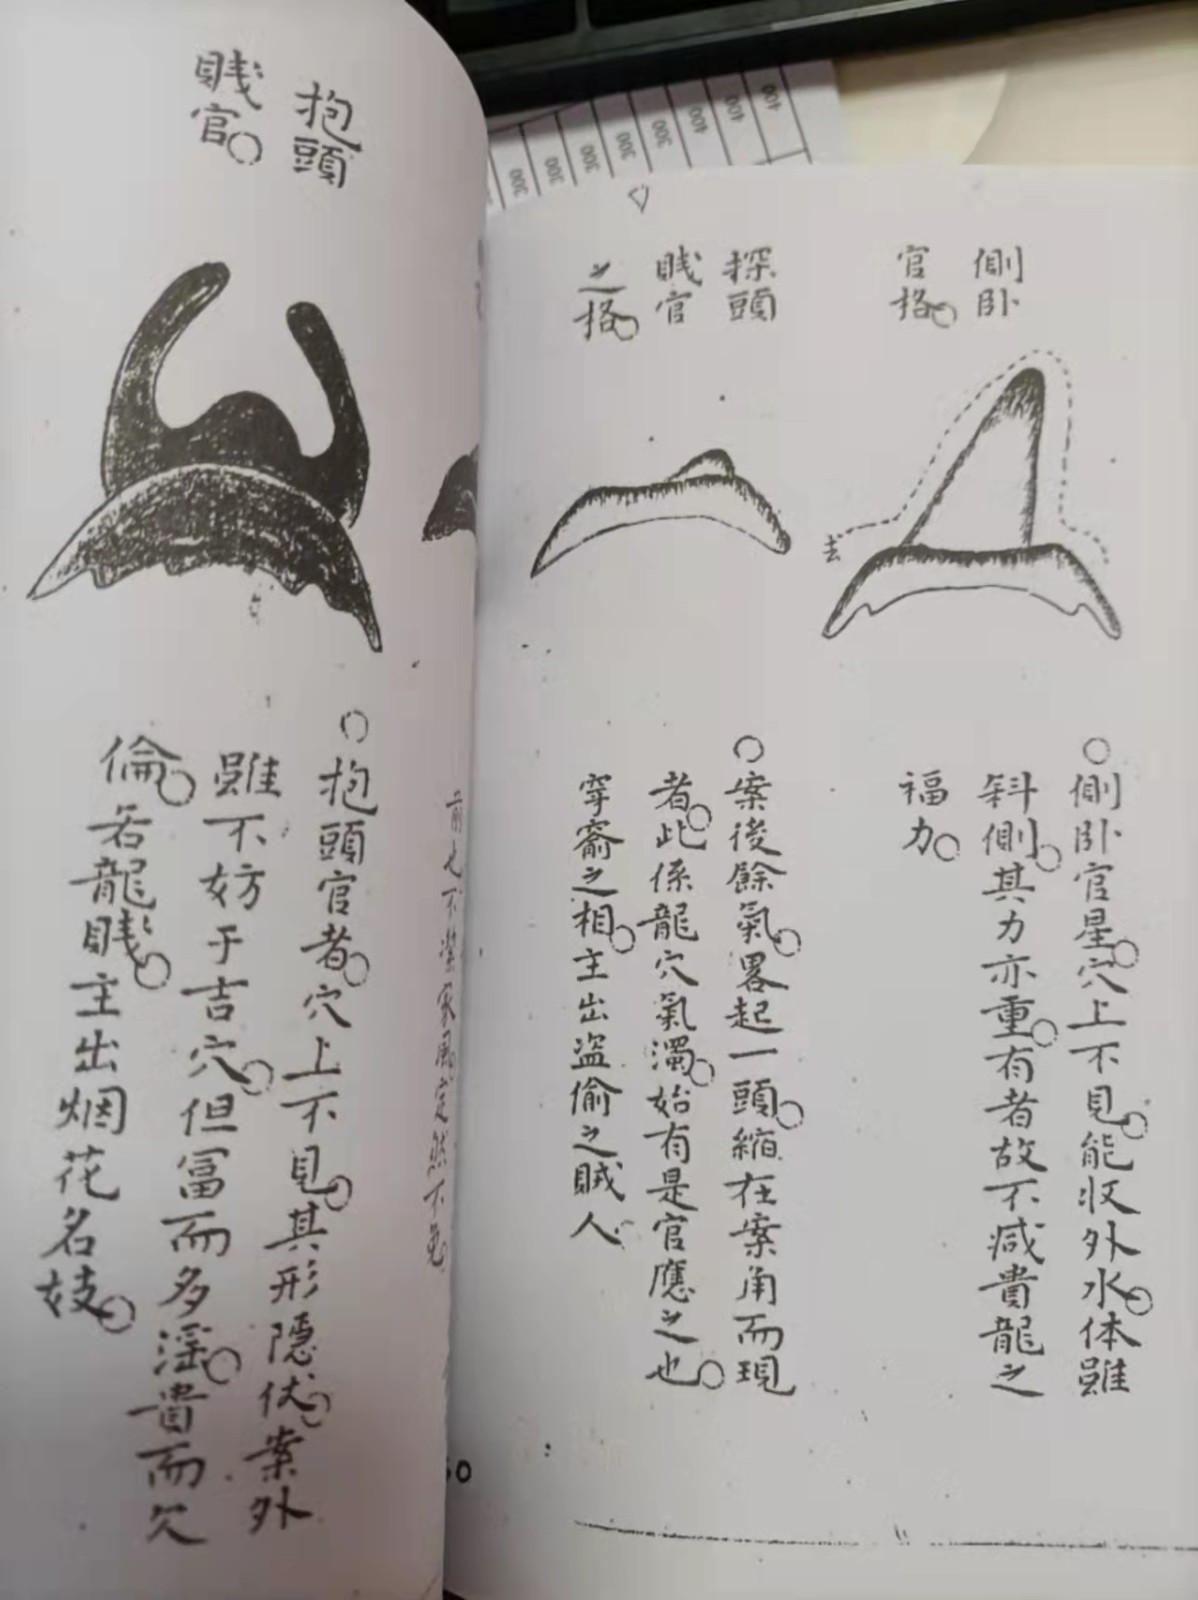 側卧
官格
探頭
賎官
之格
去
側卧官星穴上不見能收外水体雖
斜側其力亦重有者故不减貴龍之
福力
案後餘氣畧起一頭縮在案角而現
者此係龍穴氣濁始有是官應之也
穿窬之相主出盗偷之賊人
抱頭
賎官
抱頭官者穴上不見其形隠伏案外
雖不妨于吉穴但冨而多淫貴而欠
倫若龍賎主出烟花名妓
400
400
400
300
300
300
300
300